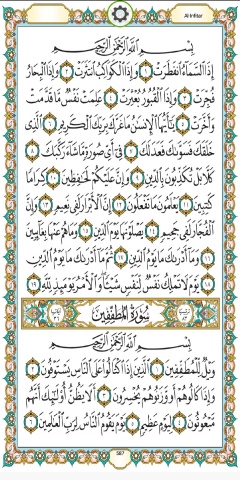 Al-Infitar
بِسْمِ اللَّهِ الرَّحْمَٰنِ الرَّحِيمِ
إِذَا السَّمَاءُ انفَطَرَتْ ١ وَإِذَا الْكَوَاكِبُ انتَثَرَتْ ٢ وَإِذَا الْبِحَارُ
فُجِّرَتْ ٣ وَإِذَا الْقُبُورُ بُعْثِرَتْ ٤ عَلِمَتْ نَفْسٌ مَّا قَدَّمَتْ
وَأَخَّرَتْ ٥ يَا أَيُّهَا الْإِنسَانُ مَا غَرَّكَ بِرَبِّكَ الْكَرِيمِ ٦ الَّذِي
خَلَقَكَ فَسَوَّاكَ فَعَدَلَكَ ٧ فِي أَيِّ صُورَةٍ مَّا شَاءَ رَكَّبَكَ ٨
كَلَّا بَلْ تُكَذِّبُونَ بِالدِّينِ ٩ وَإِنَّ عَلَيْكُمْ لَحَافِظِينَ ١٠ كِرَامًا
كَاتِبِينَ ١١ يَعْلَمُونَ مَا تَفْعَلُونَ ١٢ إِنَّ الْأَبْرَارَ لَفِي نَعِيمٍ ١٣ وَإِنَّ
الْفُجَّارَ لَفِي جَحِيمٍ ١٤ يَصْلَوْنَهَا يَوْمَ الدِّينِ ١٥ وَمَا هُمْ عَنْهَا بِغَائِبِينَ
١٦ وَمَا أَدْرَاكَ مَا يَوْمُ الدِّينِ ١٧ ثُمَّ مَا أَدْرَاكَ مَا يَوْمُ الدِّينِ
١٨ يَوْمَ لَا تَمْلِكُ نَفْسٌ لِّنَفْسٍ شَيْئًا وَالْأَمْرُ يَوْمَئِذٍ لِّلَّهِ ١٩
سُورَةُ الْمُطَفِّفِينَ
بِسْمِ اللَّهِ الرَّحْمَٰنِ الرَّحِيمِ
وَيْلٌ لِّلْمُطَفِّفِينَ ١ الَّذِينَ إِذَا اكْتَالُوا عَلَى النَّاسِ يَسْتَوْفُونَ ٢
وَإِذَا كَالُوهُمْ أَو وَّزَنُوهُمْ يُخْسِرُونَ ٣ أَلَا يَظُنُّ أُولَٰئِكَ أَنَّهُم
مَّبْعُوثُونَ ٤ لِيَوْمٍ عَظِيمٍ ٥ يَوْمَ يَقُومُ النَّاسُ لِرَبِّ الْعَالَمِينَ ٦
587